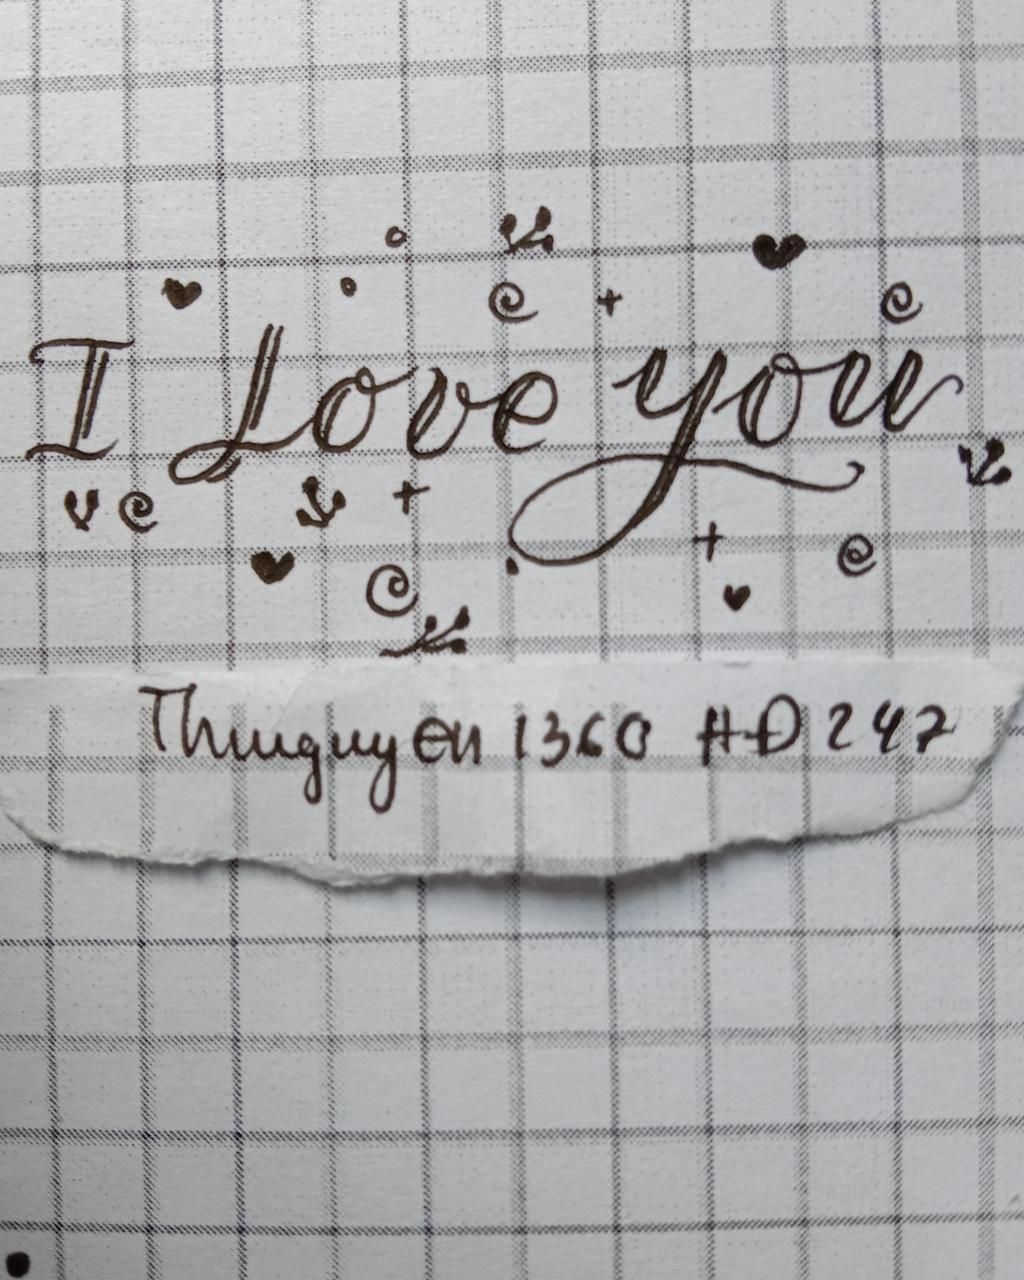 I Love you
Thuuguyen 1360 HĐ 247